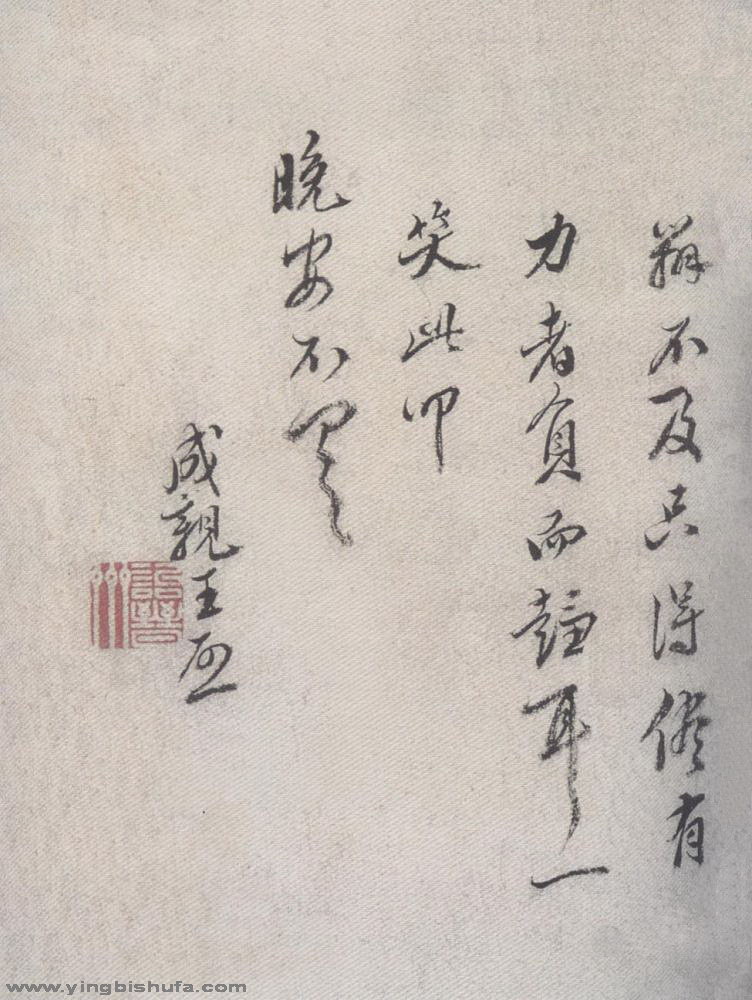 不及只得俟有
力者負而趨耳一
笑此叩
晚安不具
成親王
www.yingbishufa.com